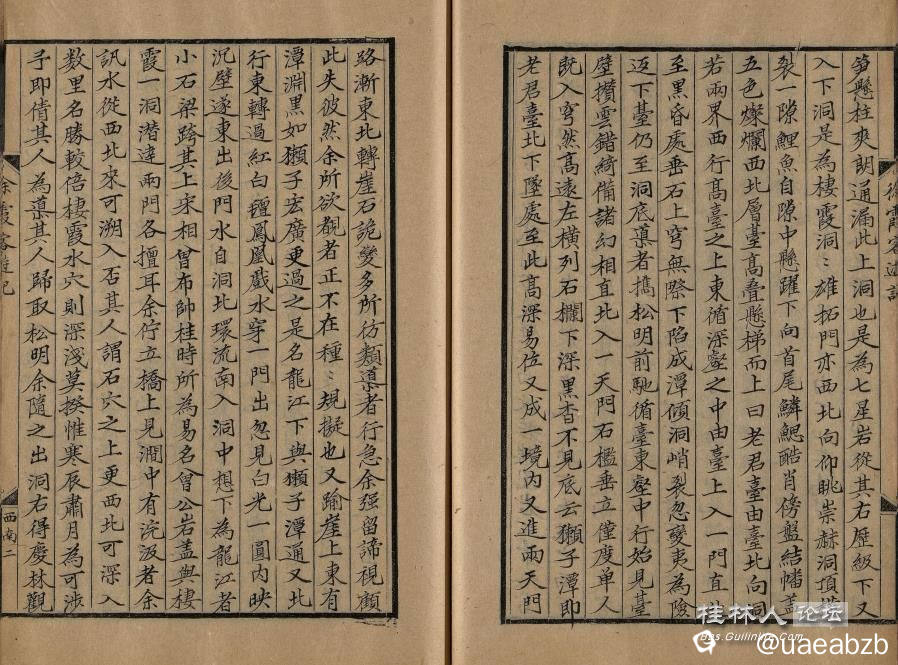 笋懸柱爽朗通漏此上洞也是為七星岩從其右歷級下又
入下洞是為棲霞洞〻雄拓門亦西北向仰眺崇赫洞頂
裂一隙鯉魚自隙中懸躍下向首尾鱗鰓酷肖傍盤結幡蓋
五色燦爛西北層臺高叠懸梯而上曰老君臺由臺北向洞
若兩界西行髙臺之上東循深壑之中由臺上入一門直
至黑昏處垂石上穹無際下陷成潭傾洞峭裂忽變夷為險
下臺仍至洞底導者擕松明前馳循臺東壑中行始見臺
壁攢雲錯綺備諸幻相直北入一天門石檻垂立僅度单人
旣入穹然髙遠左橫列石欄下深黑杳不見底云獺子潭即
老君臺北下墜處至此髙深易位又成一境內又進兩天門
徐霞客遊記
路漸東北轉崖石詭變多所仿類導者行急余强留諦視顧
此失彼然余所欲覩者正不在種〻規擬也又踰崖上東有
潭淵黑如獺子宏廣更過之是名龍江下與獺子潭通又北
行東轉過紅白氊鳳凰戲水穿一門出忽見白光一圓內映
沉壁遂東出後門水自洞北環流南入洞中想下為龍江者
小石梁跨其上宋相曾布帥桂時所為易名曾公岩盖與棲
霞一洞潛達兩門各擅耳余佇立橋上見澗中有浣汲者余
訊水從西北來可溯入否其人謂石穴之上更西北可深入
数里名勝較倍棲霞水穴則深淺莫揆惟寒辰肅月為可涉
予即倩其人為導其人歸取松明余隨之出洞右得慶林觀
徐霞客遊記
西南二
桂林人论坛
Bbs.Guilinlife.Com
@uaeabzb